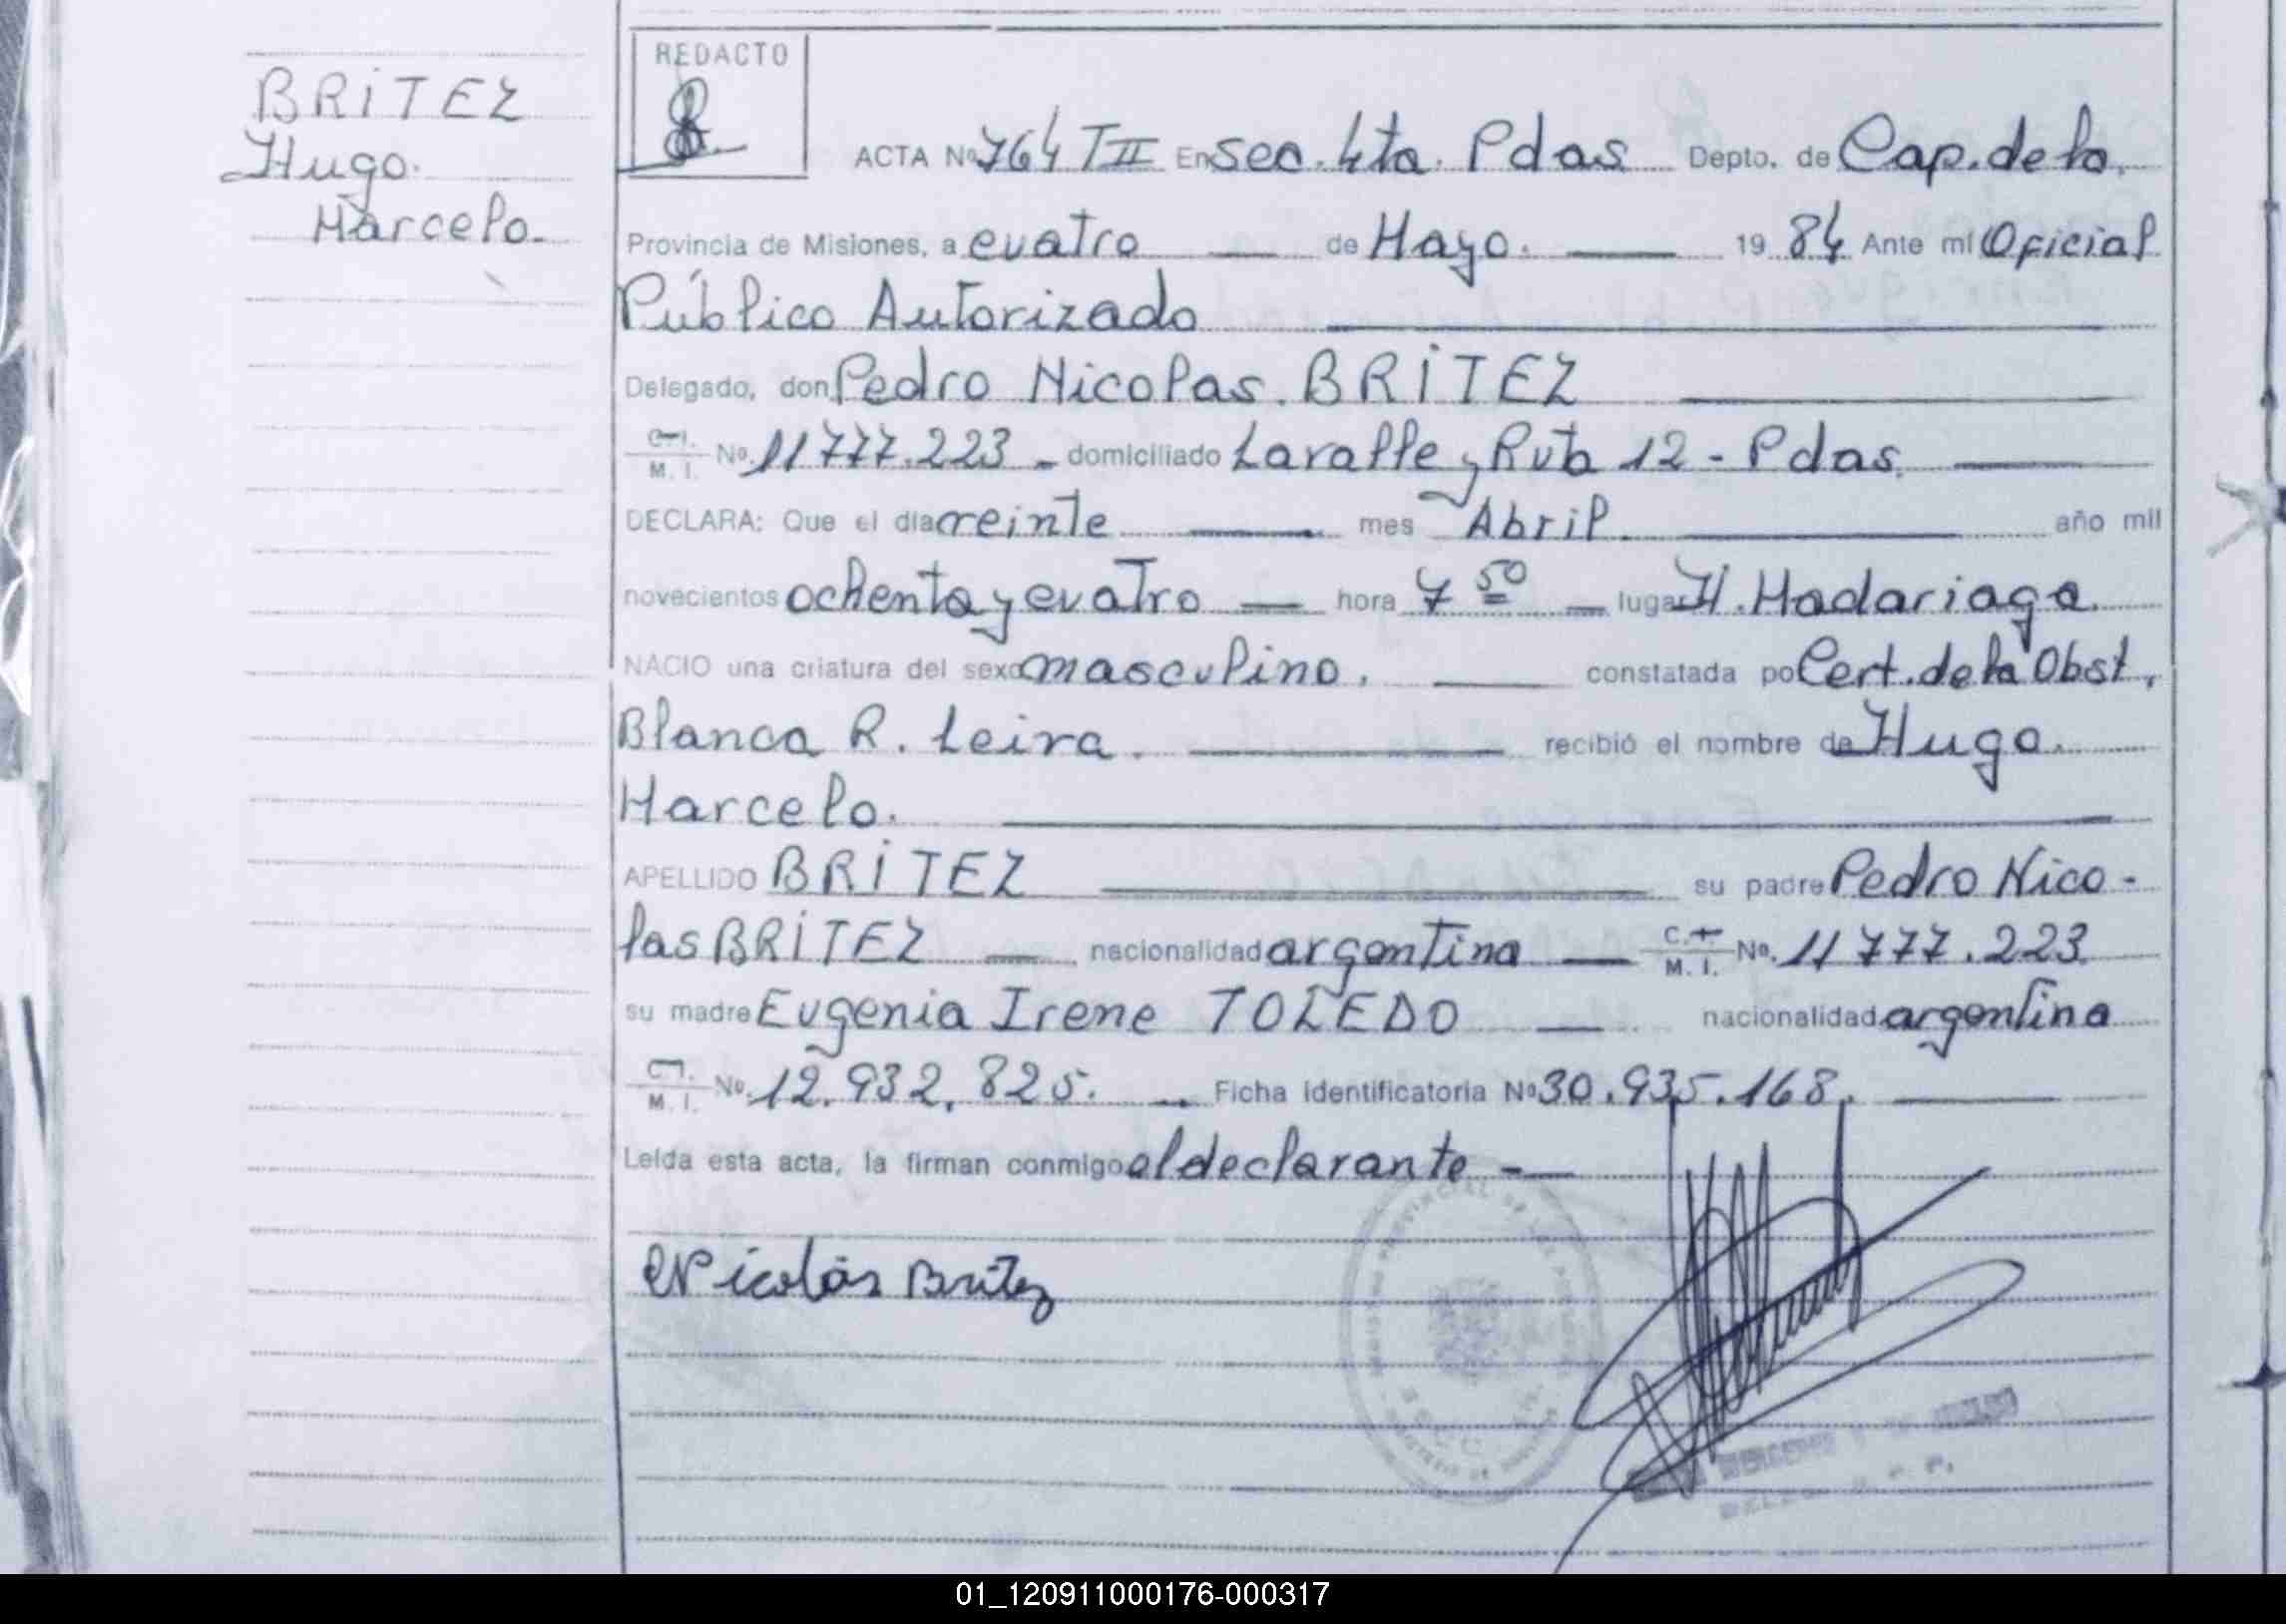 BRITEZ
Hugo.
Marcelo.
REDACTO
ACTA Nº 764 TII En Sec. 4ta. Pdas Depto. de Cap. de la,
Provincia de Misiones, a cuatro de Mayo. 19 84 Ante mí Oficial
Público Autorizado
Delegado, don Pedro Nicolas. BRITEZ
C.I. M. I. Nº. 11777.223 - domiciliado Lavalle y Ruta 12 - Pdas.
DECLARA: Que el día veinte mes Abril. año mil
novecientos ochenta y cuatro hora 7 50 lugar H. Madariaga.
NACIO una criatura del sexo masculino, constatada por Cert. de la Obst,
Blanca R. Leiva. recibió el nombre de Hugo.
Marcelo.
APELLIDO BRITEZ su padre Pedro Nico-
las BRITEZ nacionalidad argentina C.I. M. I. Nº. 11777.223.
su madre Eugenia Irene TOLEDO nacionalidad argentina
C.I. M. I. Nº. 12.932.825. Ficha Identificatoria Nº 30.935.168.
Leída esta acta, la firman conmigo el declarante -
Nicolás Britez
01_120911000176-000317